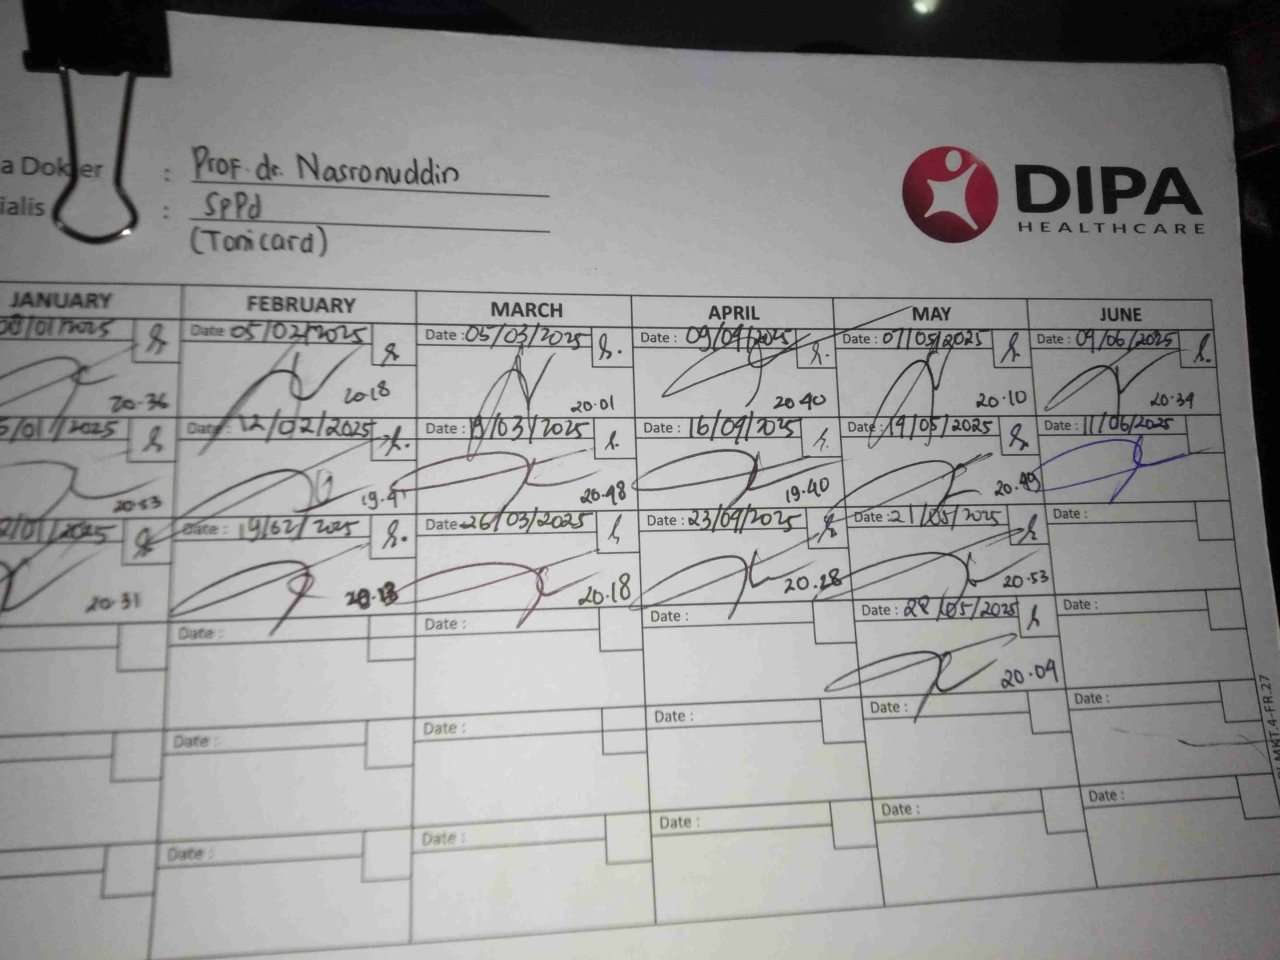 a Dokter : Prof. dr. Nasronuddin
ialis : SpPd
(Tonicard)
DIPA
HEALTHCARE
JANUARY FEBRUARY MARCH APRIL MAY JUNE
08/01/2025 Date : 05/02/2025 Date : 05/03/2025 Date : 09/04/2025 Date : 07/05/2025 Date : 09/06/2025
20.36 20.18 20.01 20.40 20.10 20.34
5/01/2025 Date : 12/02/2025 Date : 19/03/2025 Date : 16/04/2025 Date : 14/05/2025 Date : 11/06/2025
20.53 20.48 19.40 20.49
2/01/2025 Date : 19/02/2025 Date : 26/03/2025 Date : 23/04/2025 Date : 21/05/2025 Date :
20.31 20.18 20.28 20.53
Date : Date : Date : Date : 28/05/2025 Date :
20.04
Date : Date : Date : Date : Date :
Date : Date : Date : Date : Date :
MKT.4-FR.27